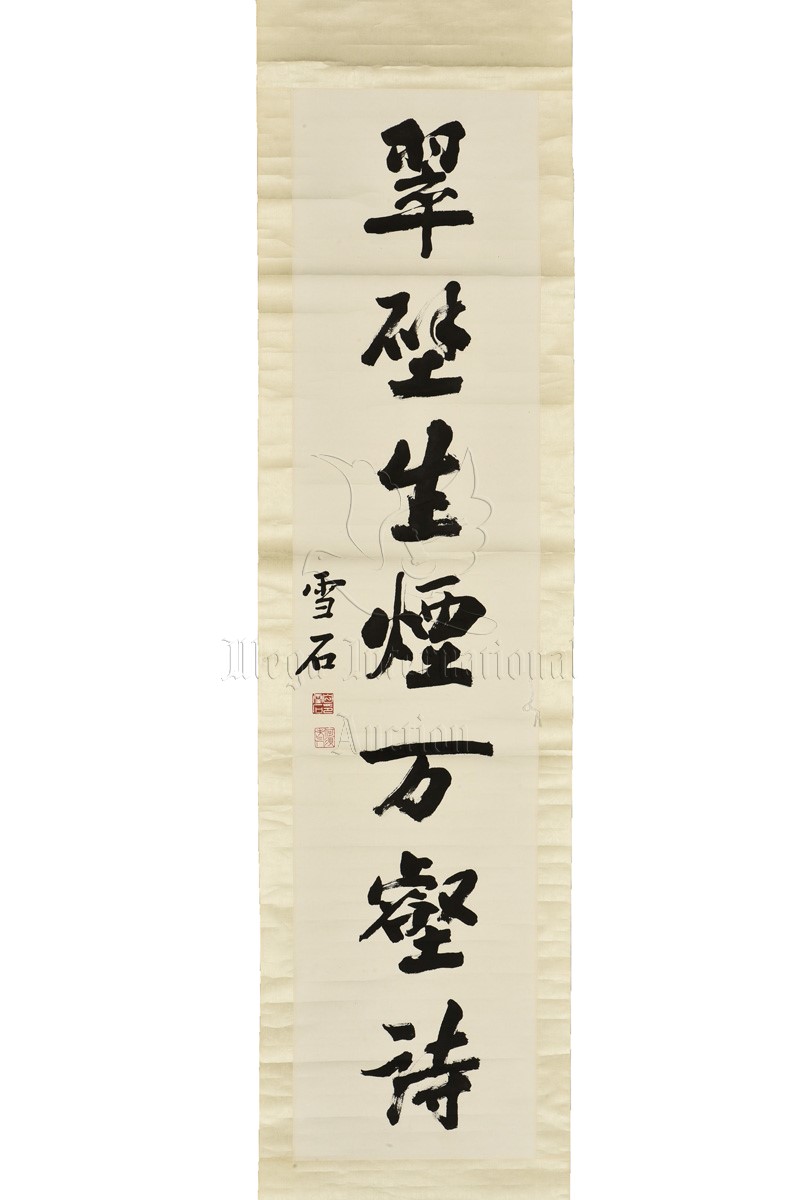 翠壁生煙万壑詩
雪石
Mega International
Auction